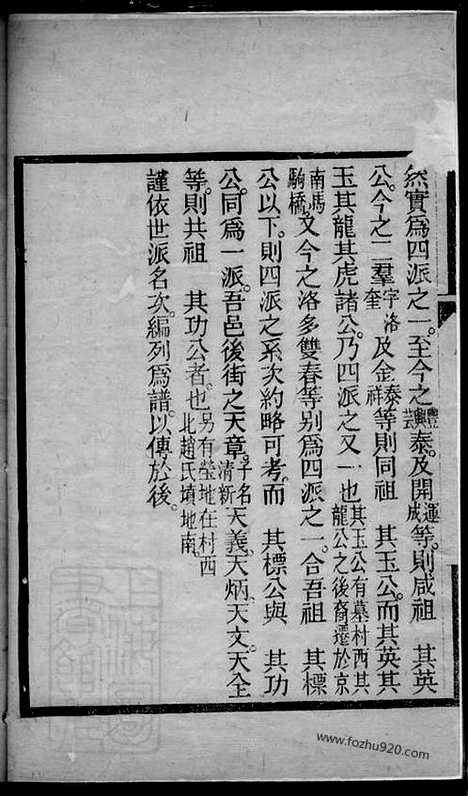 然實爲四派之一。至今之豐興芸泰。及開運成等。則咸祖　其英
公。今之二羣字洛奎及金泰祥等則同祖　其玉公。而其英其
玉其龍其虎諸公。乃四派之又一也其玉公有墓村西其龍公之後裔遷於京
南馬駒橋。又今之洛多雙春等别爲四派之一。合吾祖　其標
公以下。則四派之系次約略可考。而　其標公與　其功
公。同爲一派。吾邑後街之天章。子名清新天義、天炳、天文。天全
等。則共祖　其功公者。也另有塋地在村西北趙氏墳地南。
謹依世派名次。編列爲譜。以傳於後。
www.fozhu920.com